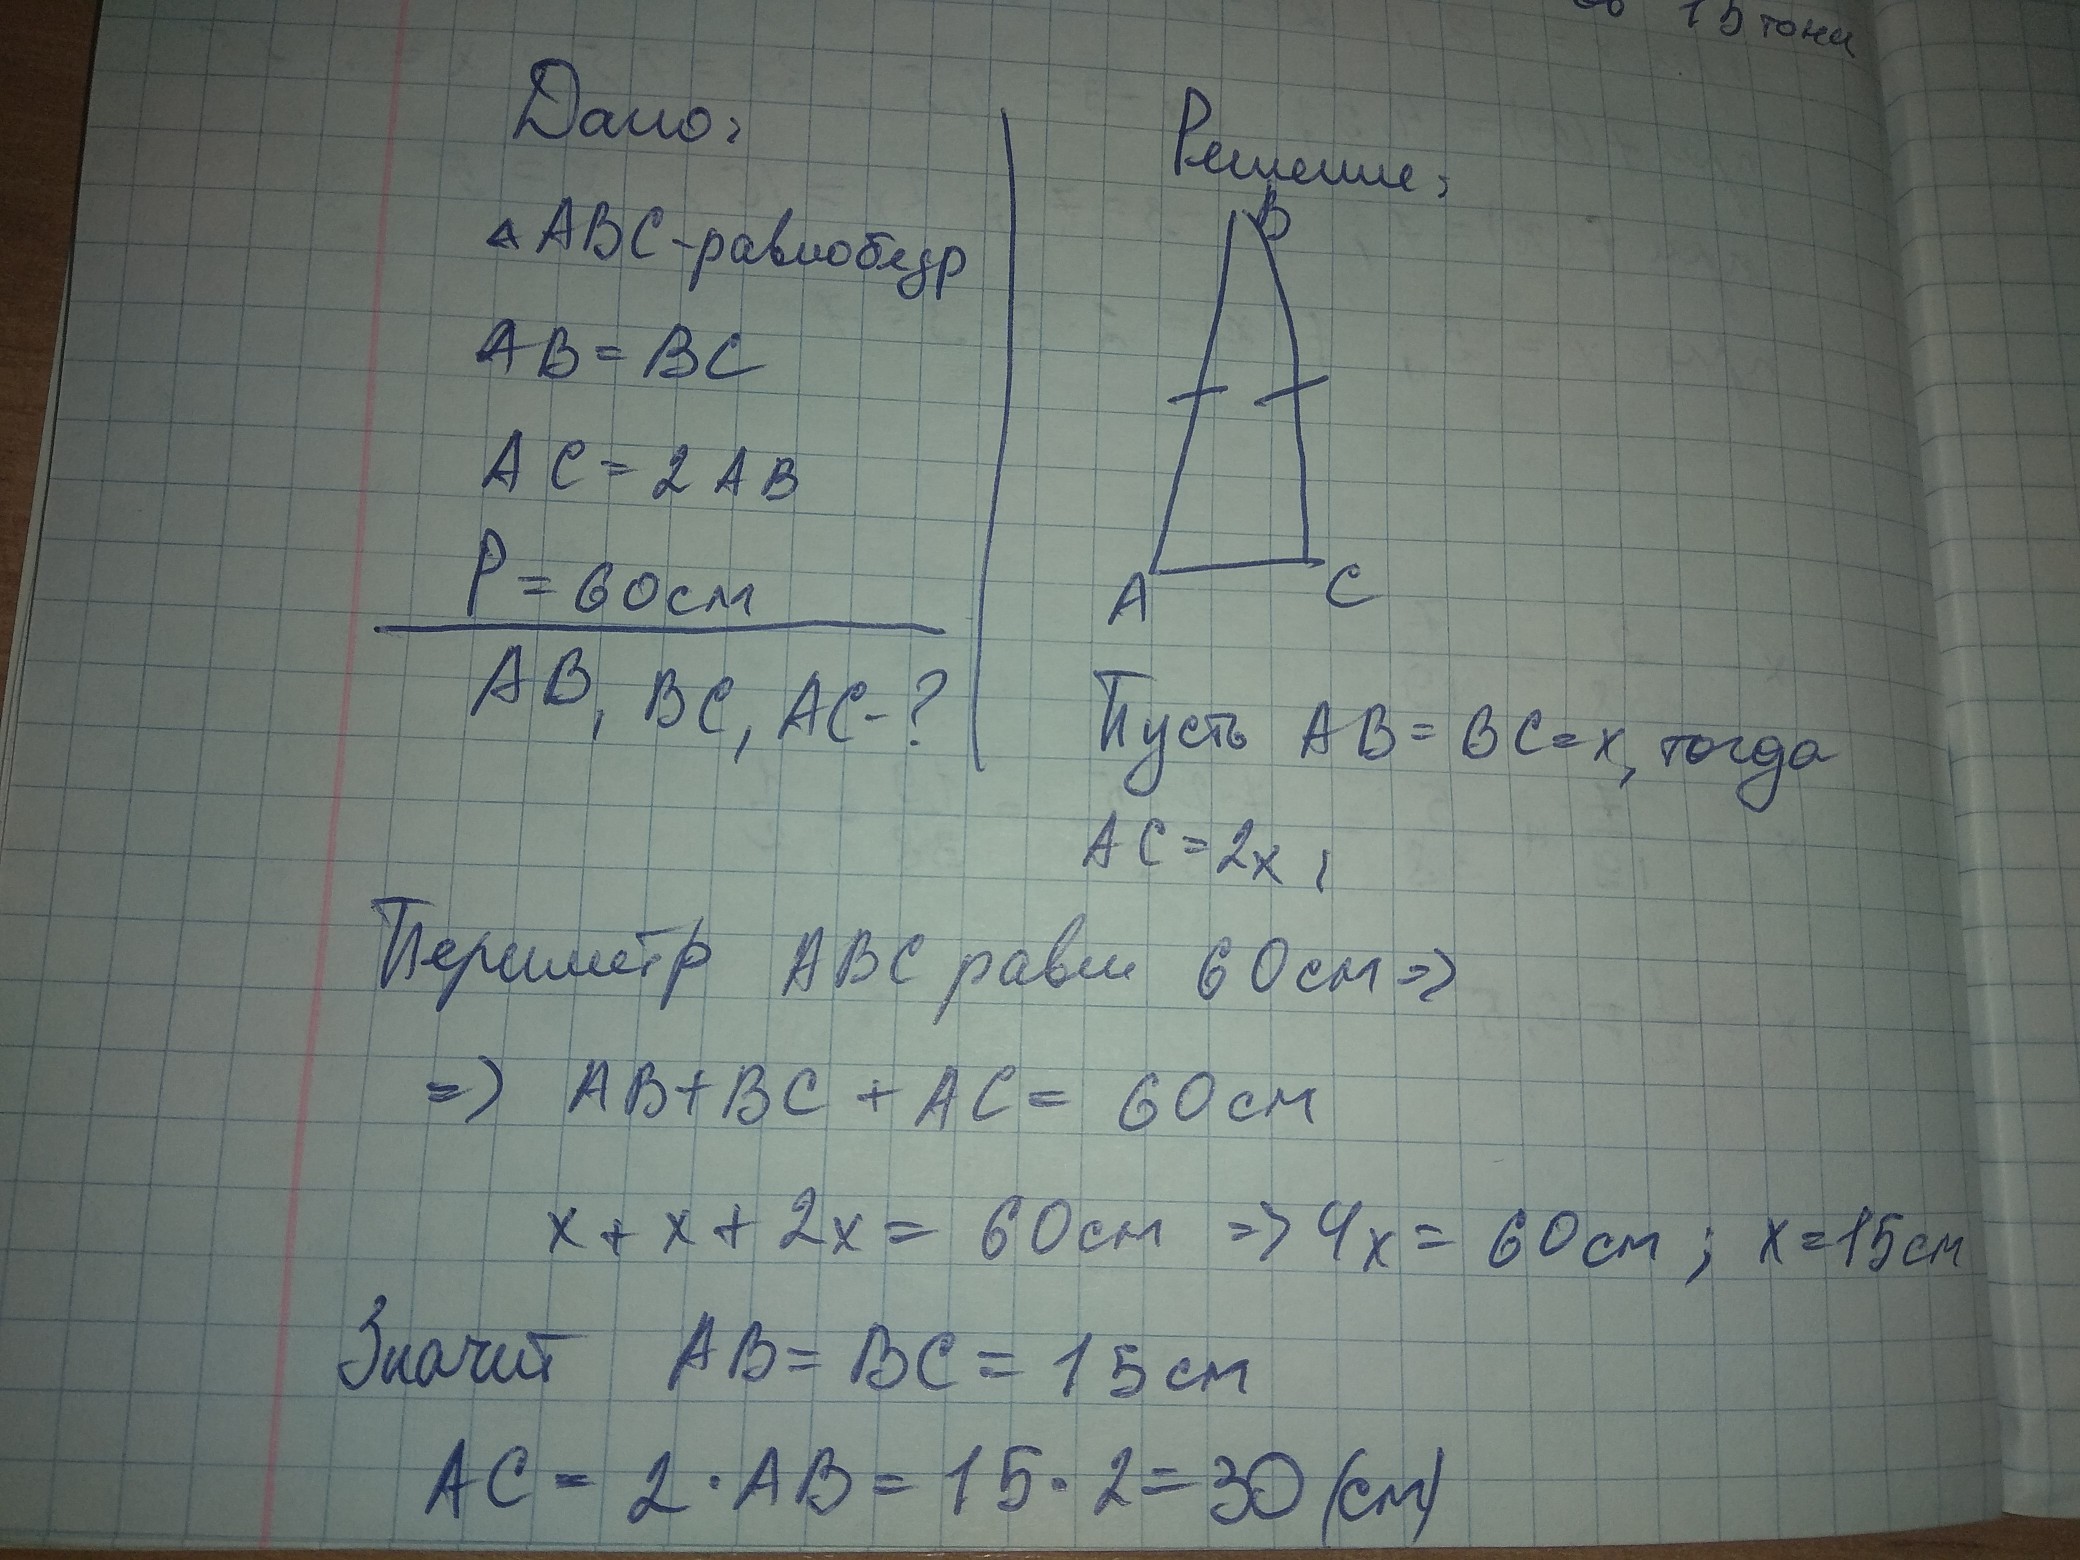 15 тонн
Дано:
△ABC-равнобедр
AB=BC
AC=2AB
P=60см
AB, BC, AC-?
Решение:
B
A C
Пусть AB=BC=x, тогда
AC=2x,
Периметр ABC равен 60см=>
=> AB+BC+AC=60см
x+x+2x=60см => 4x=60см; x=15см
Значит AB=BC=15см
AC=2·AB=15·2=30(см)